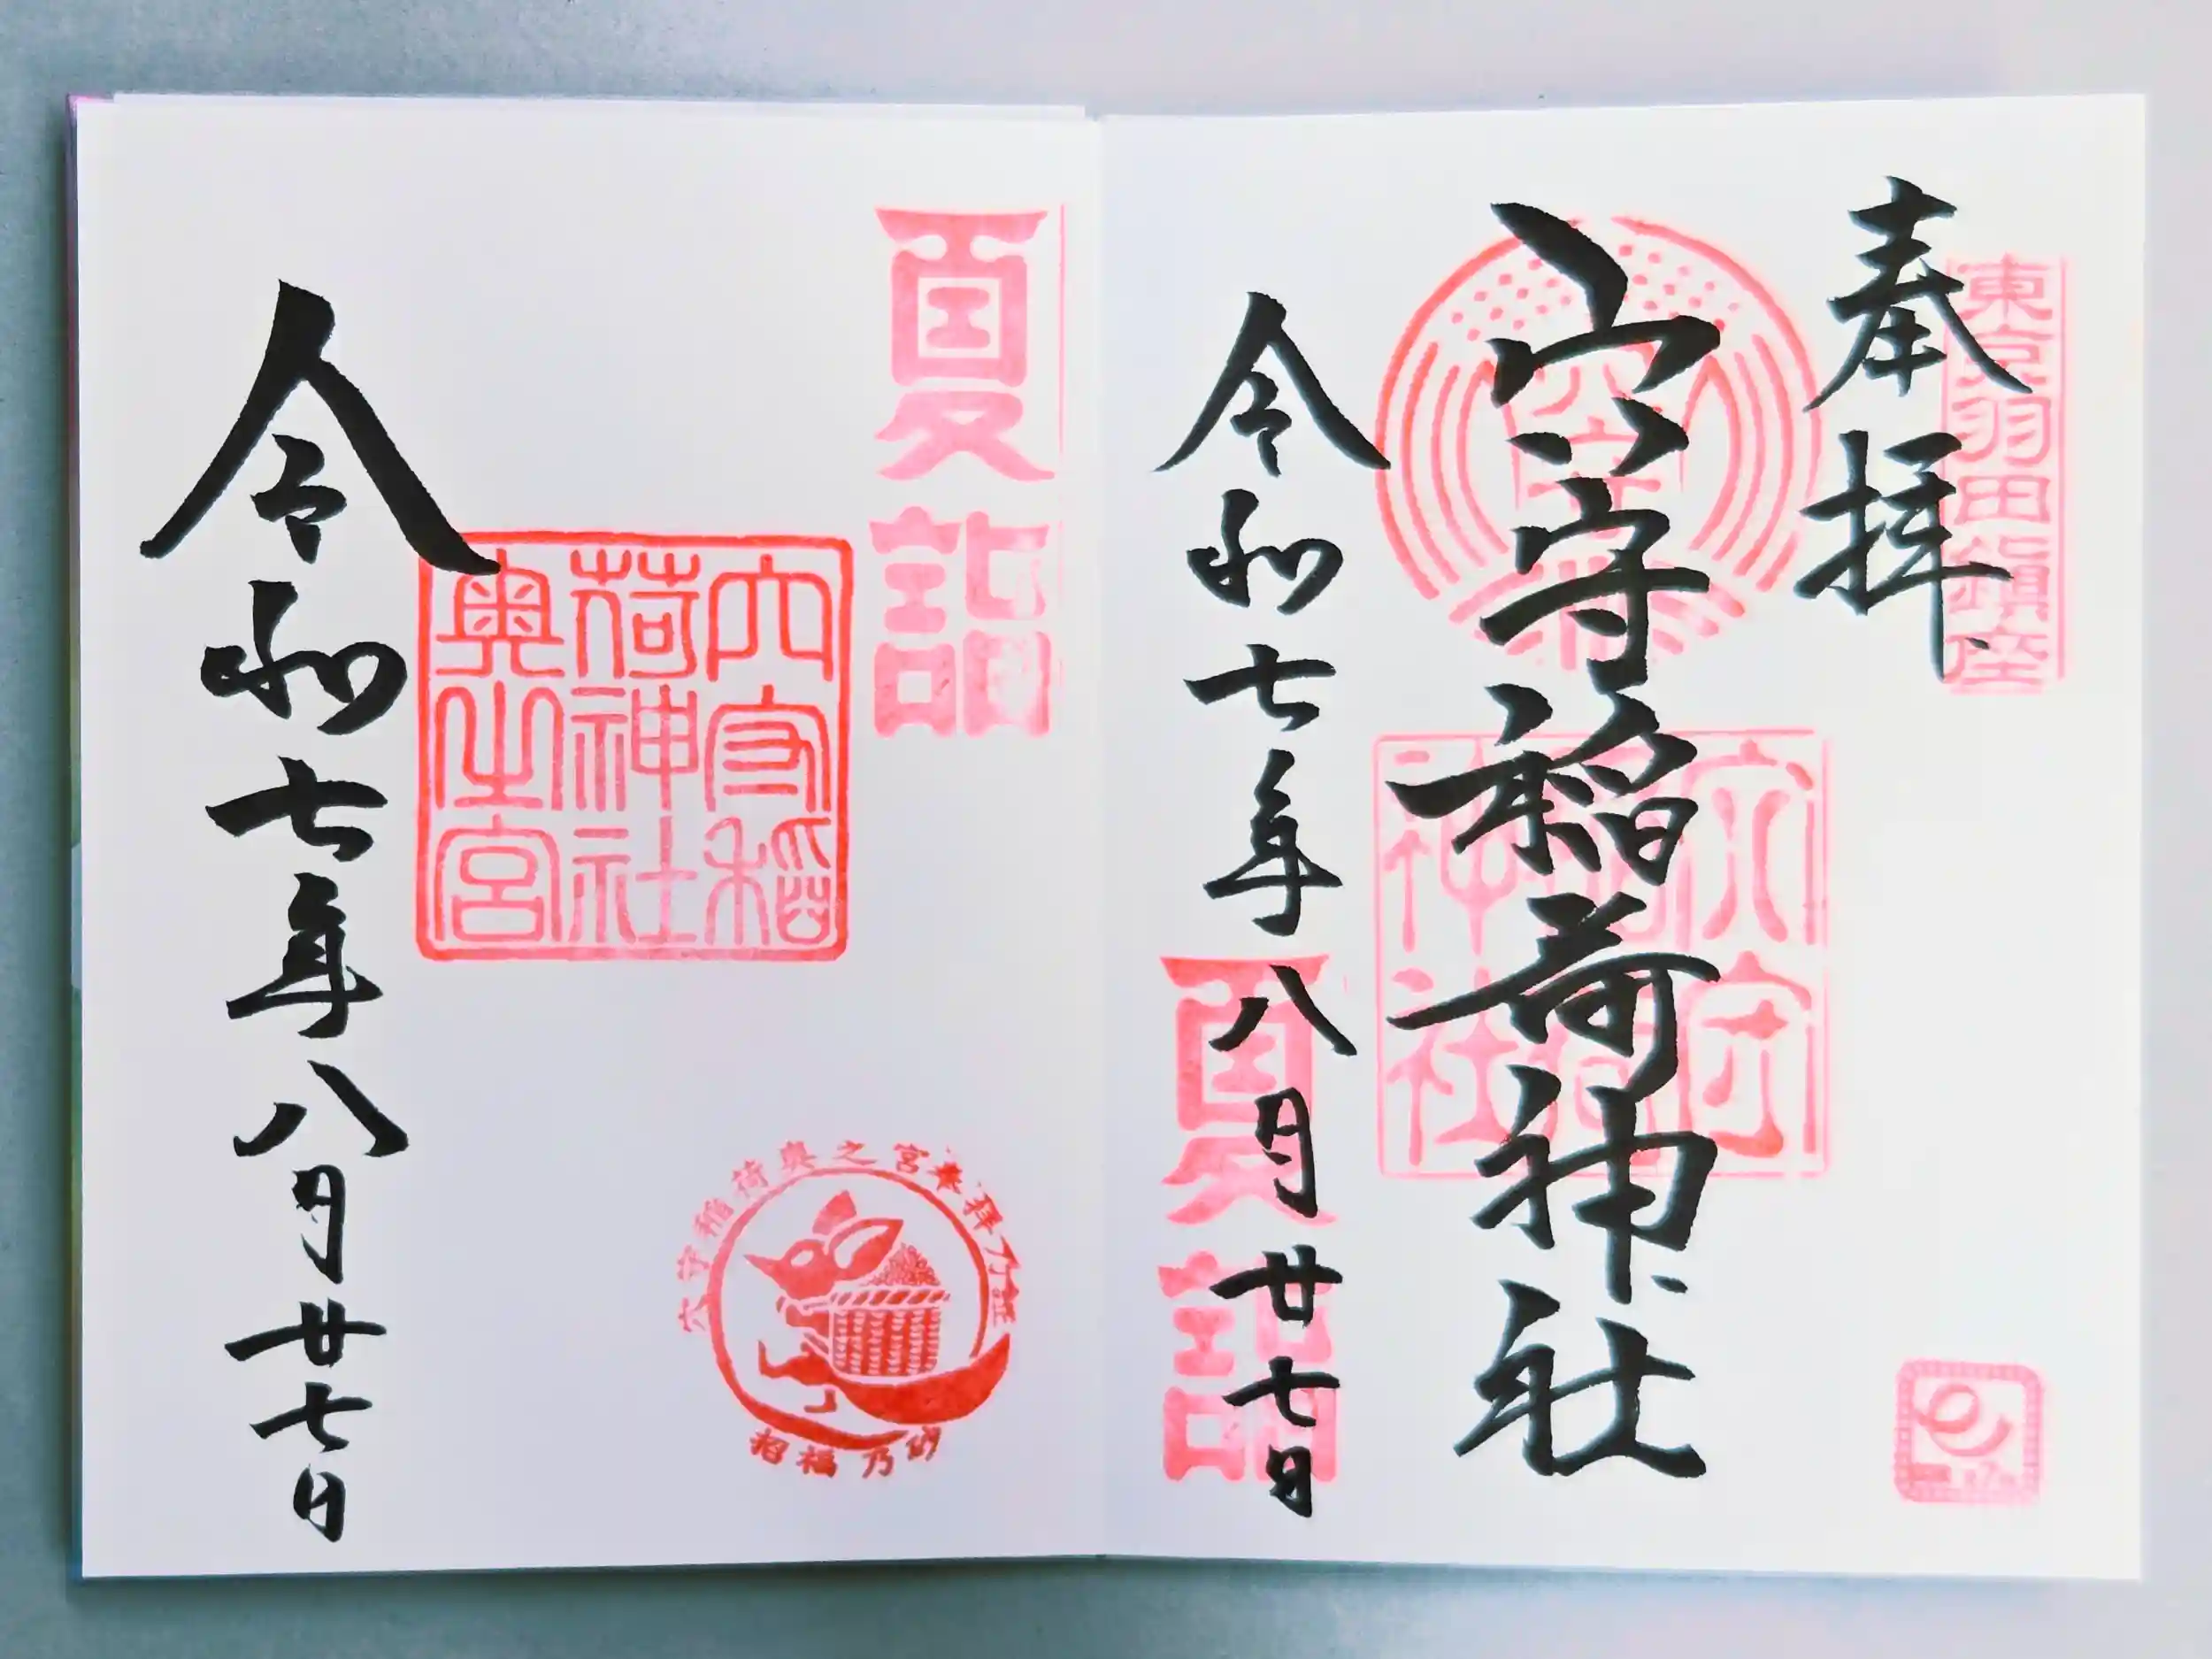 東京羽田鎮座
奉拝
穴守稲荷神社
穴守
稲荷
神社
令和七年八月廿七日
夏詣
夏詣
穴守稲
荷神社
奥之宮
令和七年八月廿七日
穴守稲荷奥之宮奉拝乃証
招福乃砂